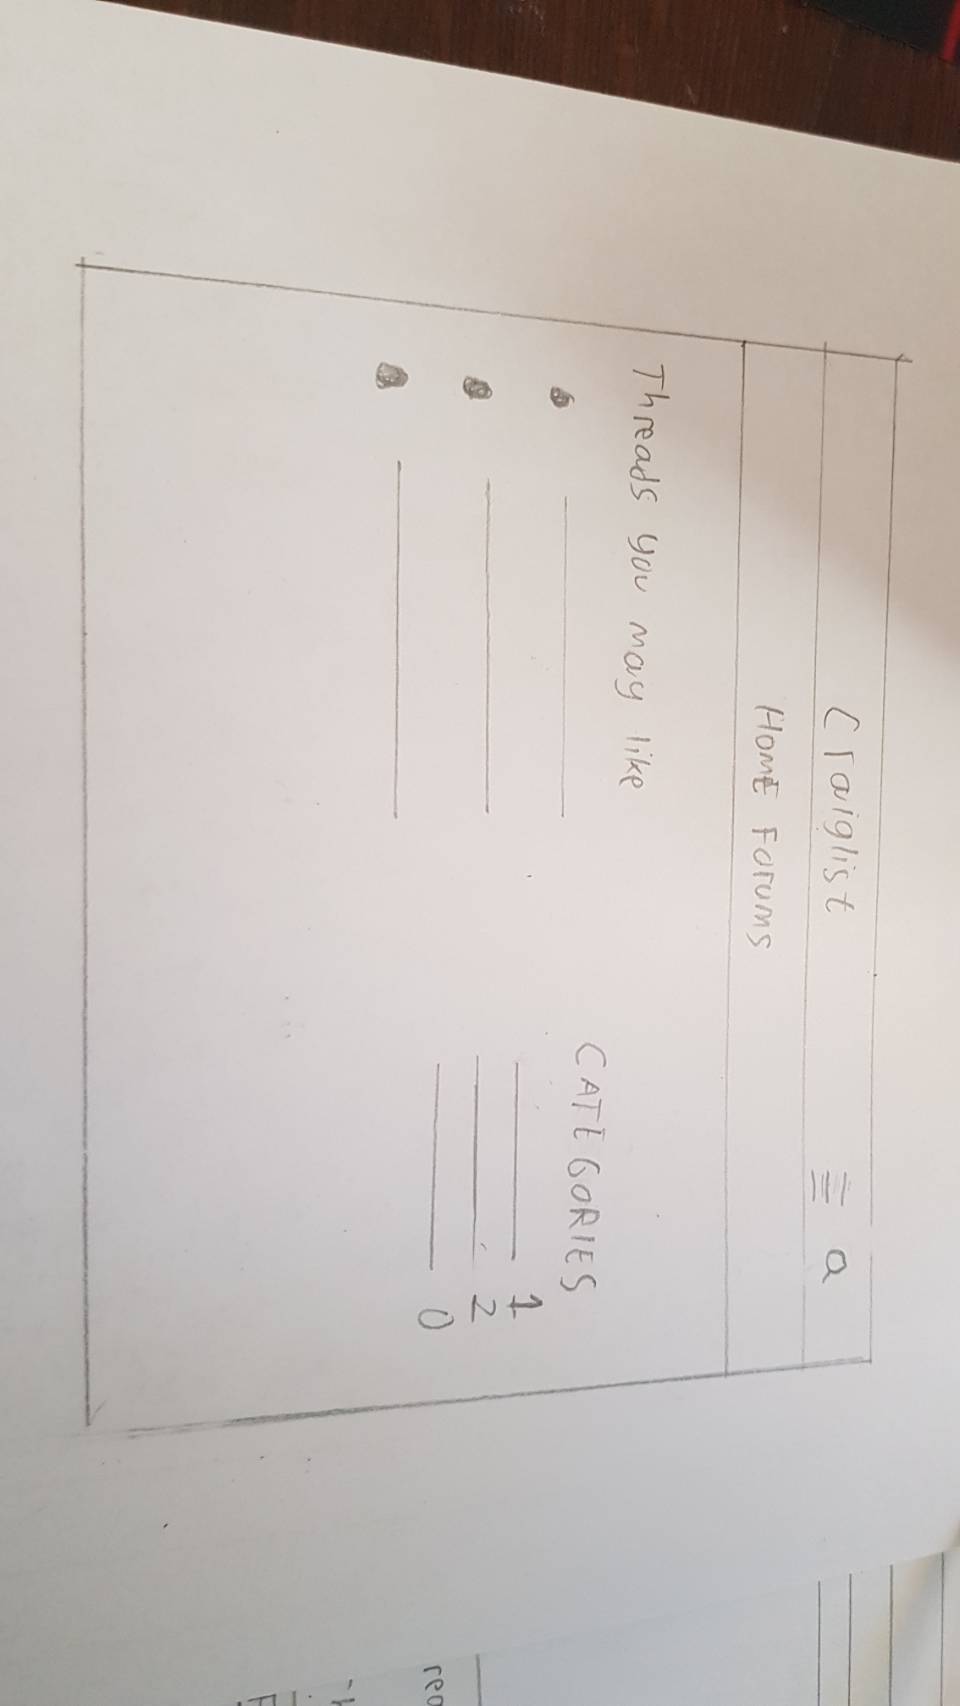 Craiglist a
HOME Forums
Threads you may like
CATEGORIES
1
2
0